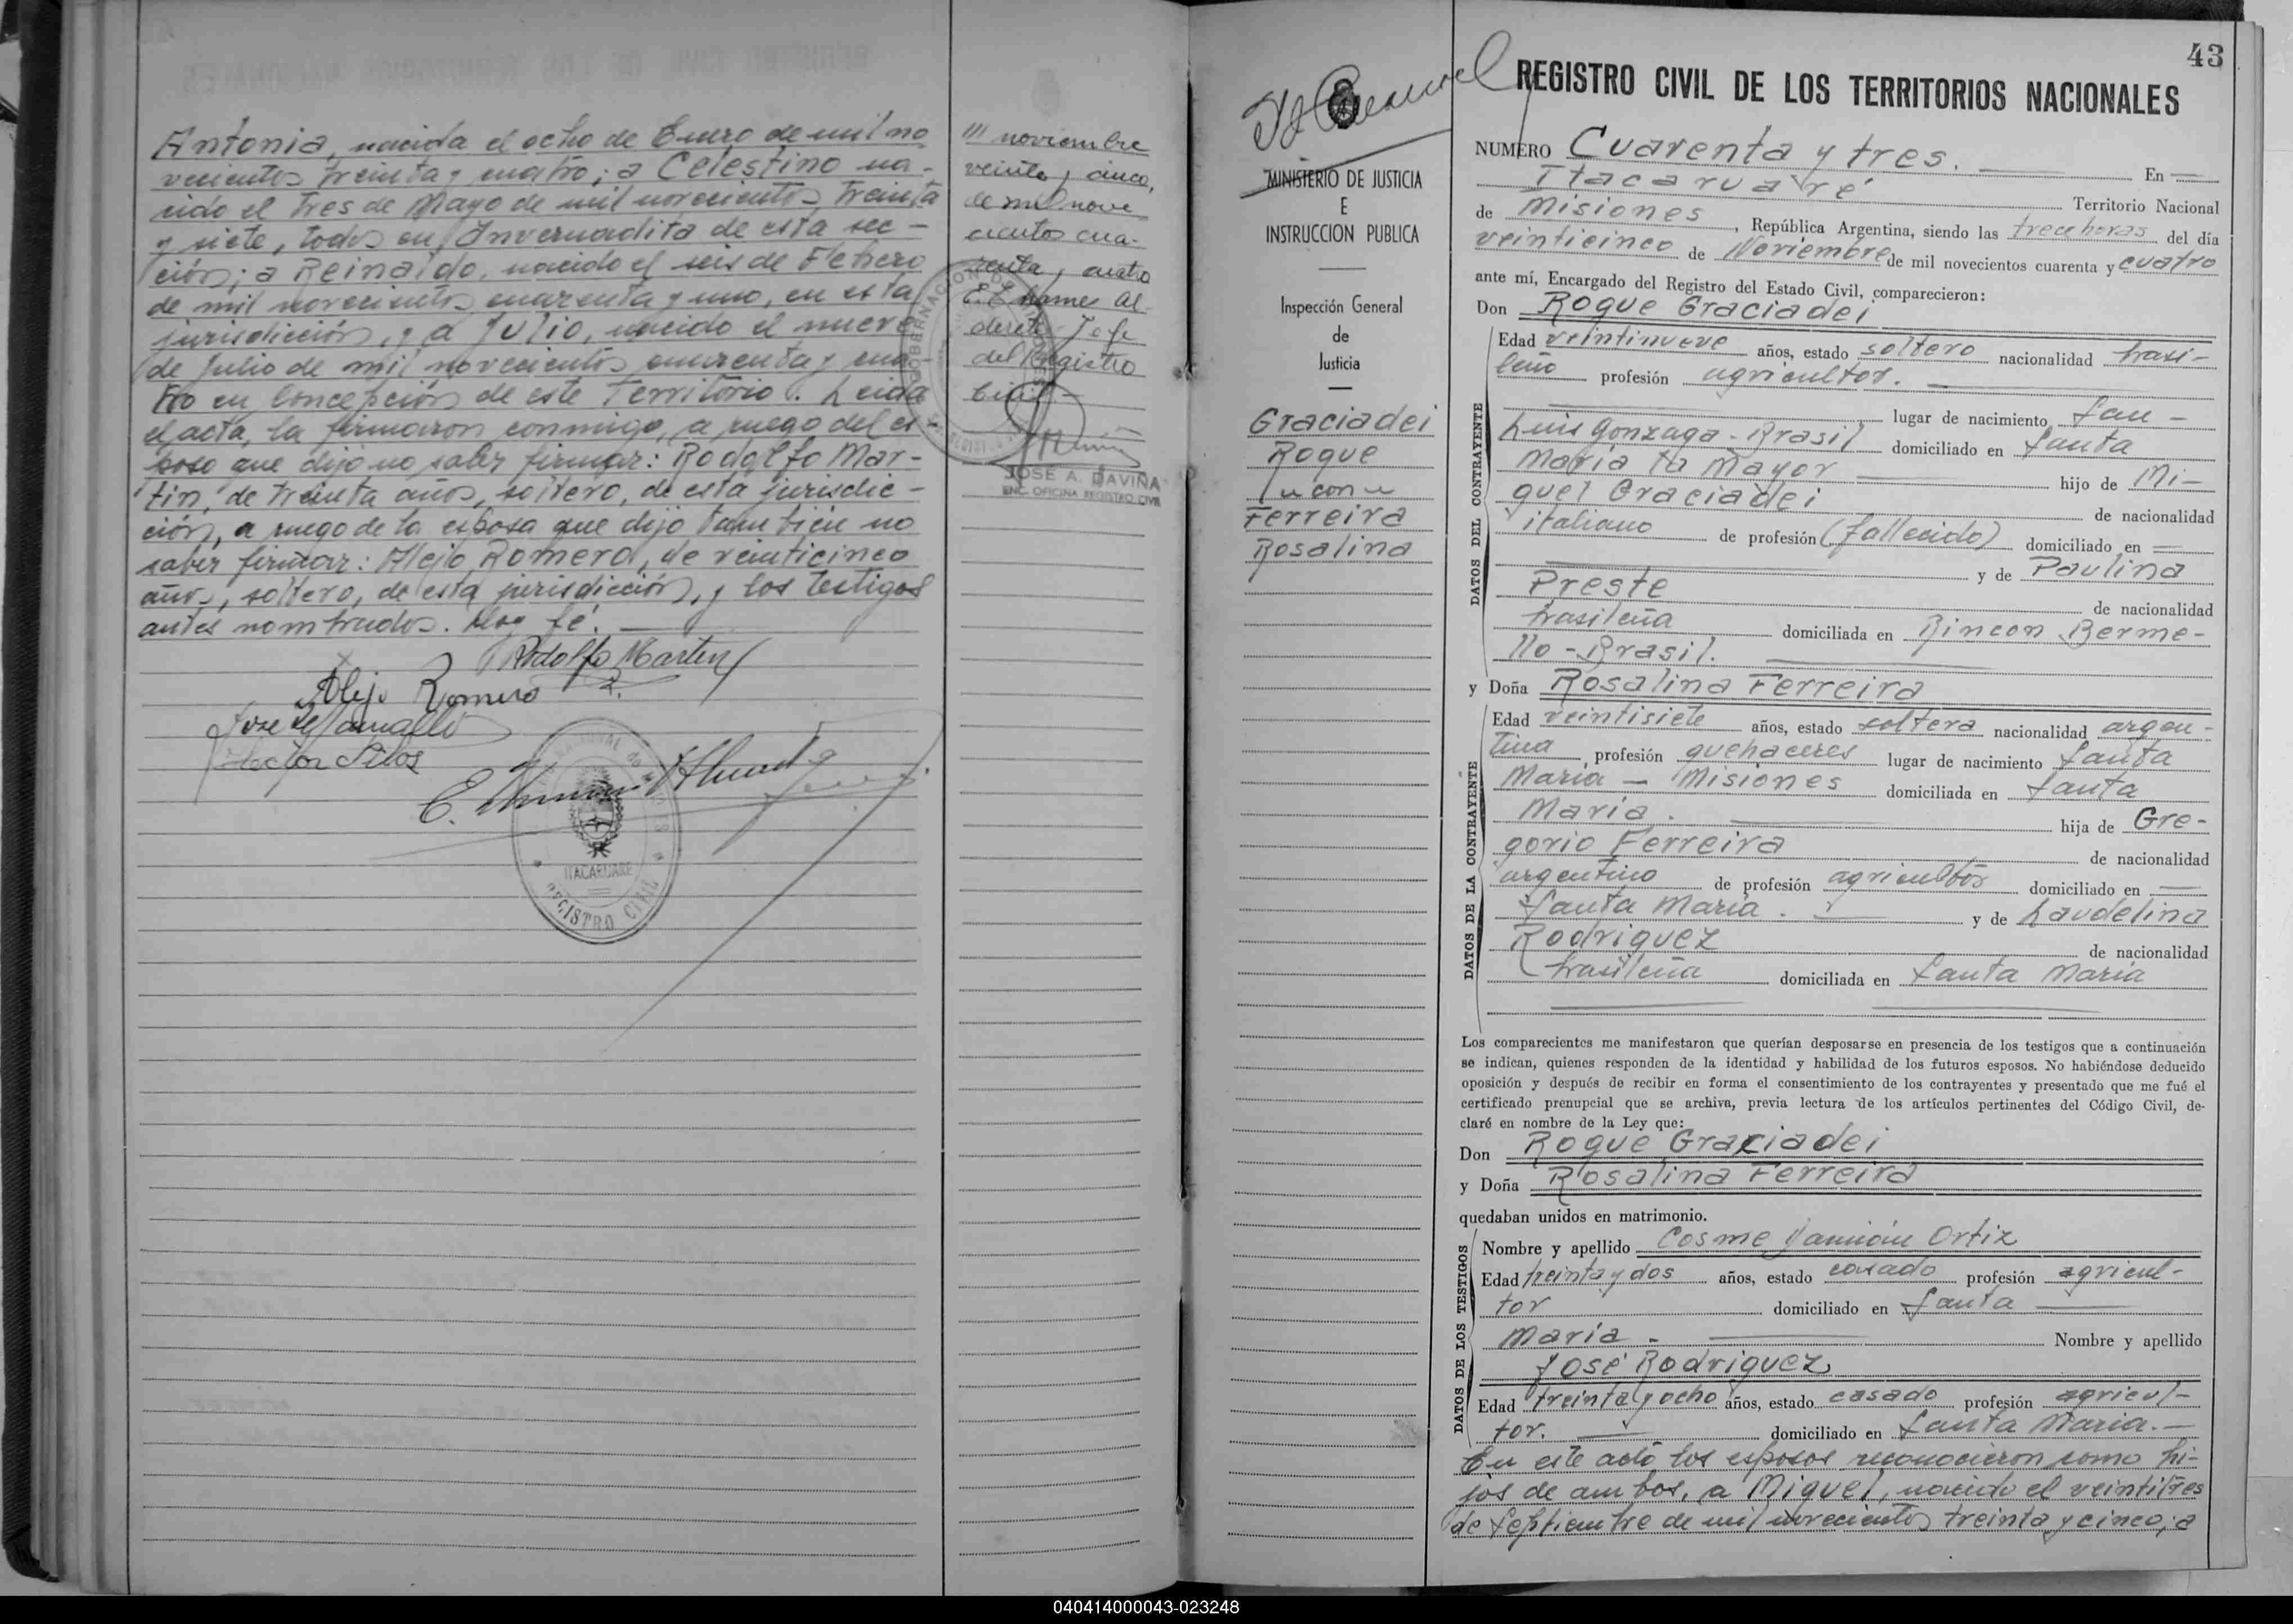 Antonia, nacida el ocho de Enero de mil no
vecientos treinta y cuatro; a Celestino na-
cido el tres de Mayo de mil novecientos treinta
y siete, todos en Invernadita de esta sec-
ción; a Reinaldo, nacido el seis de Febrero
de mil novecientos cuarenta y uno, en esta
jurisdicción, y a Julio, nacido el nueve
de Julio de mil novecientos cuarenta y cua-
tro en Concepción de este Territorio. Leida
el acta, la firmaron conmigo, a ruego del es-
poso que dijo no saber firmar: Rodolfo Mar-
tin, de treinta años, soltero, de esta jurisdic-
ción, a ruego de la esposa que dijo tambien no
saber firmar: Alejo Romero, de veinticinco
años, soltero, de esta jurisdicción, y los testigos
antes nombrados. Doy fé.
Rodolfo Martin
Alejo Romero
ITACARUARE
REGISTRO CIVIL
/// noviembre
veinte y cinco,
de mil nove
cientos cua-
renta y cuatro
Jefe
del Registro
Civil
JOSE A. DAVIÑA
ENC. OFICINA REGISTRO CIVIL
MINISTERIO DE JUSTICIA
E
INSTRUCCION PUBLICA
Inspección General
de
Justicia
Graciadei
Roque
con
Ferreira
Rosalina
43
REGISTRO CIVIL DE LOS TERRITORIOS NACIONALES
NUMERO Cuarenta y tres. En
Itacaruaré Territorio Nacional
de Misiones, República Argentina, siendo las trece horas del día
veinticinco de Noviembre de mil novecientos cuarenta y cuatro
ante mí, Encargado del Registro del Estado Civil, comparecieron:
Don Roque Graciadei
DATOS DEL CONTRAYENTE
Edad veintinueve años, estado soltero nacionalidad brasi-
leño profesión agricultor.
lugar de nacimiento San-
Luis Gonzaga - Brasil domiciliado en Santa
Maria la Mayor hijo de Mi-
guel Graciadei de nacionalidad
italiano de profesión (fallecido) domiciliado en
y de Paulina
Preste de nacionalidad
brasileña domiciliada en Rincon Berme-
llo - Brasil.
y Doña Rosalina Ferreira
DATOS DE LA CONTRAYENTE
Edad veintisiete años, estado soltera nacionalidad argen-
tina profesión quehaceres lugar de nacimiento Santa
Maria - Misiones domiciliada en Santa
Maria. hija de Gre-
gorio Ferreira de nacionalidad
argentino de profesión agricultor domiciliado en
Santa Maria. y de Laudelina
Rodriguez de nacionalidad
brasileña domiciliada en Santa Maria
Los comparecientes me manifestaron que querían desposarse en presencia de los testigos que a continuación
se indican, quienes responden de la identidad y habilidad de los futuros esposos. No habiéndose deducido
oposición y después de recibir en forma el consentimiento de los contrayentes y presentado que me fué el
certificado prenupcial que se archiva, previa lectura de los artículos pertinentes del Código Civil, de-
claré en nombre de la Ley que:
Don Roque Graciadei
y Doña Rosalina Ferreira
quedaban unidos en matrimonio.
DATOS DE LOS TESTIGOS
Nombre y apellido Cosme Damián Ortiz
Edad treinta y dos años, estado casado profesión agricul-
tor domiciliado en Santa
Maria - Nombre y apellido
José Rodriguez
Edad treinta y ocho años, estado casado profesión agricul-
tor. domiciliado en Santa Maria.-
En este acto los esposos reconocieron como hi-
jos de ambos, a Miguel, nacido el veintitres
de Septiembre de mil novecientos treinta y cinco; a
040414000043-023248